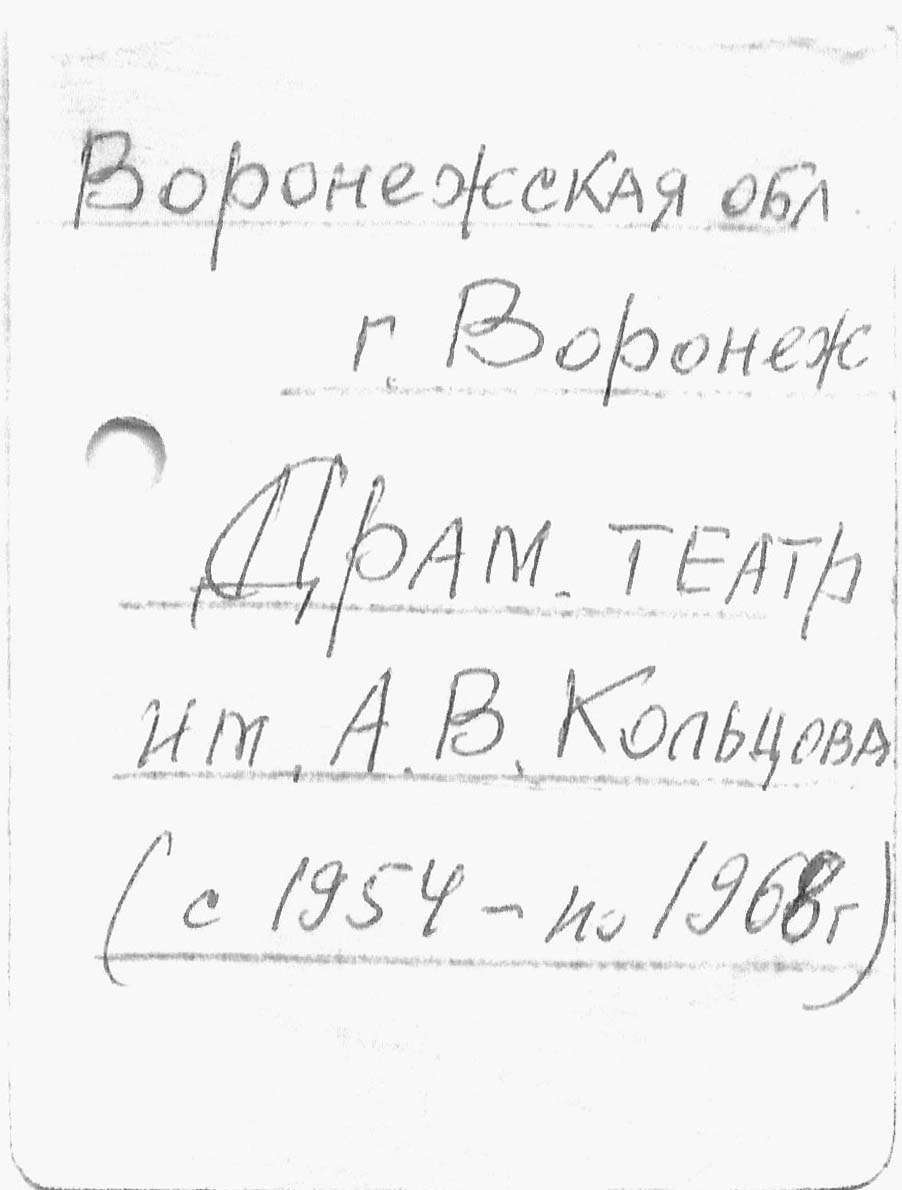 Воронежская обл
г. Воронеж
Драм. театр
им. А. В. Кольцова
(с 1954 - по 1968г)